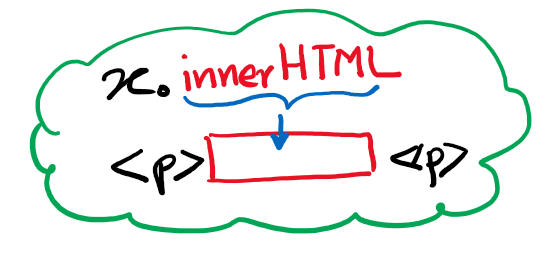 x.innerHTML
<p> <p>